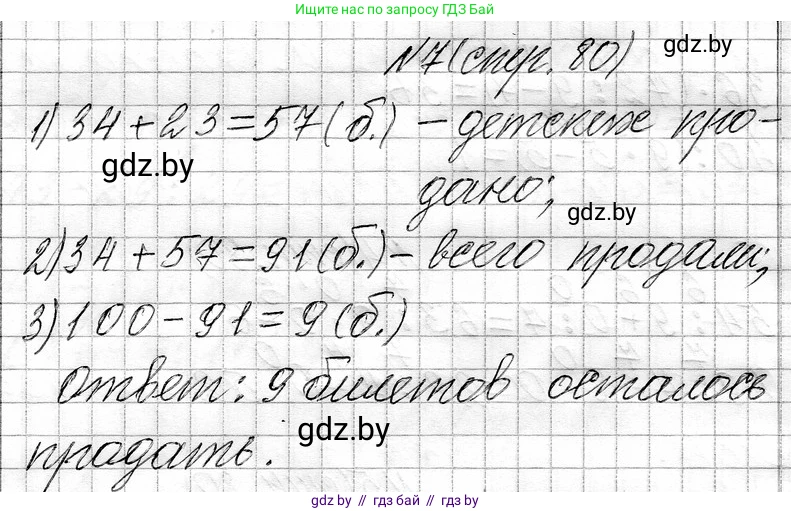 Ищите нас по запросу ГДЗ БАЙ
№7(стр. 80) gdz.by
1) 34+23=57(б.) – детских про-
gdz.by
дано;
gdz.by
2) 34+57=91(б.) – всего продали;
3) 100-91=9(б.)
Ответ: 9 билетов осталось
продать. gdz.by
gdz.by // гдз бай // gdz.by